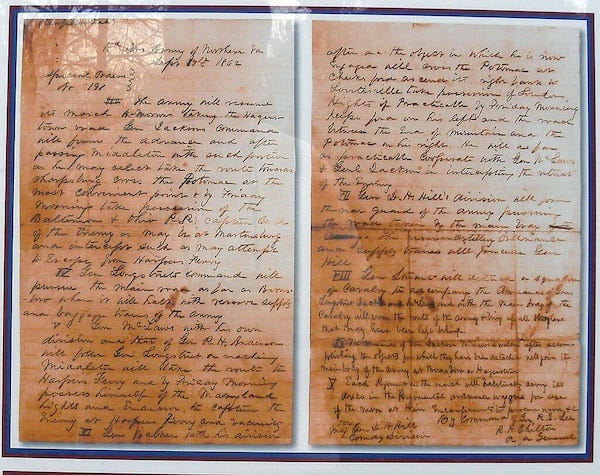 Hd Qrs Army of Northern Va
Sept 9th 1862
Special Orders
No 191
III The army will resume
its march to-morrow taking the Hagers-
town road Gen Jacksons Command
will form the advance and after
passing Middletown with such portion
as he may select take the route towards
Sharpsburg cross the Potomac at the
most convenient point & by Friday
Morning take possession of the
Baltimore & Ohio R.R. capture such
of the Enemy as may be at Martinsburg
and intercept such as may attempt
to Escape from Harpers Ferry
IV Gen Longstreets Command will
pursue the main road as far as Boons-
boro where it will halt with reserve supply
and baggage trains of the Army
V Gen McLaws with his own
division and that of Gen R. H. Anderson
will follow Gen Longstreet on reaching
Middletown will take the route to
Harpers Ferry and by Friday Morning
possess himself of the Maryland
hights and Endeavor to capture the
Enemy at Harpers Ferry and vicinity
VI Gen Walker with his division
after the object in which he is now
Engaged will cross the Potomac at
Cheeks ford ascend its right bank to
Lovettsville take possession of Loudon
Hights if Practicable by Friday Morning
Keyes ford on his left and the road
between the End of Mountain and the
Potomac on his right. He will as far
as practicable Cooperate with Gen McLaws
& Genl Jackson in intercepting the retreat
of the Enemy
VII Gen D. H. Hill's division will form
the rear guard of the Army pursuing
the road taken by the main body
The reserve artillery Ordnance
and supply trains will precede Gen
Hill
VIII Gen Stuart will detach a squadron
of Cavalry to accompany the Commands of Gen
Longstreet Jackson and McLaws and with the main body of the
Cavalry will cover the route of the Army & bring up all stragglers
that may have been left behind
IX The commands of Gen Jackson McLaws & Walker after accom-
plishing the objects for which they have been detached will join the
main body of the army at Boonsboro or Hagerstown
X Each Regiment on the march will habitually carry its
axes in the Regimental ordnance wagons for use
of the men at their Encampments to procure wood &c
By Command of Gen R. E. Lee
R. H. Chilton
A. A. General
For
Maj Gen D. H. Hill
Comdg Division